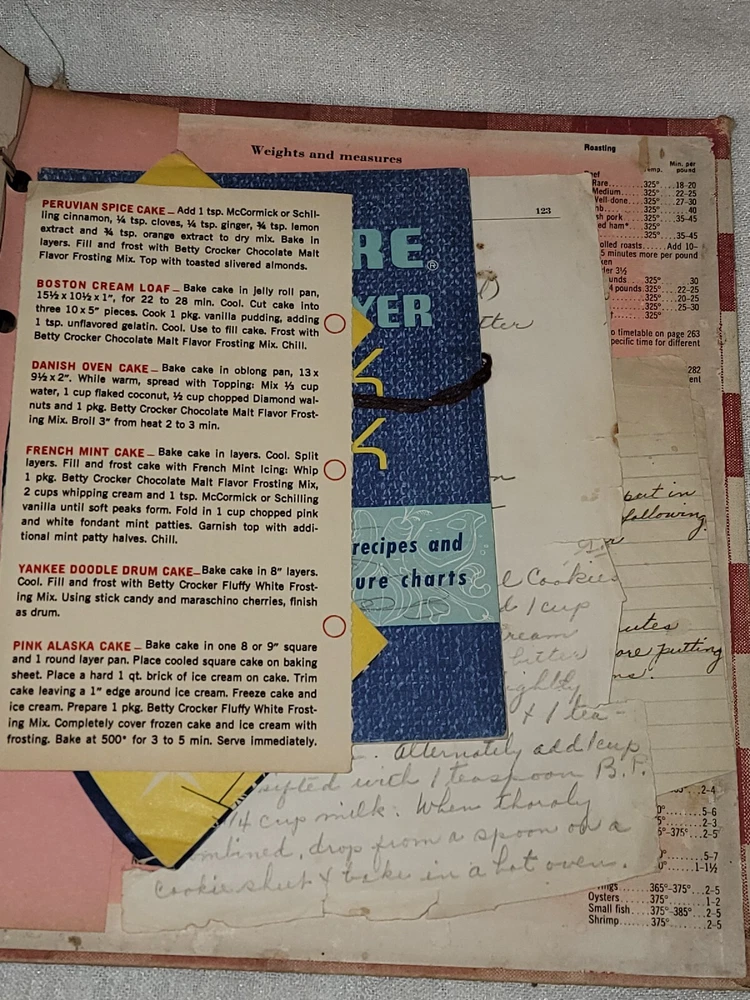 Weights and measures
PERUVIAN SPICE CAKE — Add 1 tsp. McCormick or Schil-
ling cinnamon, ¼ tsp. cloves, ¼ tsp. ginger, ¾ tsp. lemon
extract and ¾ tsp. orange extract to dry mix. Bake in
layers. Fill and frost with Betty Crocker Chocolate Malt
Flavor Frosting Mix. Top with toasted slivered almonds.
BOSTON CREAM LOAF — Bake cake in jelly roll pan,
15½ x 10½ x 1", for 22 to 28 min. Cool. Cut cake into
three 10 x 5" pieces. Cook 1 pkg. vanilla pudding, adding
1 tsp. unflavored gelatin. Cool. Use to fill cake. Frost with
Betty Crocker Chocolate Malt Flavor Frosting Mix. Chill.
DANISH OVEN CAKE — Bake cake in oblong pan, 13 x
9½ x 2". While warm, spread with Topping: Mix ⅓ cup
water, 1 cup flaked coconut, ½ cup chopped Diamond wal-
nuts and 1 pkg. Betty Crocker Chocolate Malt Flavor Frost-
ing Mix. Broil 3" from heat 2 to 3 min.
FRENCH MINT CAKE — Bake cake in layers. Cool. Split
layers. Fill and frost cake with French Mint Icing: Whip
1 pkg. Betty Crocker Chocolate Malt Flavor Frosting Mix,
2 cups whipping cream and 1 tsp. McCormick or Schilling
vanilla until soft peaks form. Fold in 1 cup chopped pink
and white fondant mint patties. Garnish top with addi-
tional mint patty halves. Chill.
YANKEE DOODLE DRUM CAKE — Bake cake in 8" layers.
Cool. Fill and frost with Betty Crocker Fluffy White Frost-
ing Mix. Using stick candy and maraschino cherries, finish
as drum.
PINK ALASKA CAKE — Bake cake in one 8 or 9" square
and 1 round layer pan. Place cooled square cake on baking
sheet. Place a hard 1 qt. brick of ice cream on cake. Trim
cake leaving a 1" edge around ice cream. Freeze cake and
ice cream. Prepare 1 pkg. Betty Crocker Fluffy White Frost-
ing Mix. Completely cover frozen cake and ice cream with
frosting. Bake at 500° for 3 to 5 min. Serve immediately.
RE®
YER
recipes and
ure charts
123
tter
Cookies
d 1 cup
ream
bitter
ightly
& 1 tea-
alternately add 1 cup
sifted with 1 teaspoon B.P.
1/4 cup milk. When thoroly
mbined, drop from a spoon on a
cookie sheet & bake in a hot oven.
put in
following.
utes
ore putting
Roasting
Min. per
pound
Rare.......325°...18-20
Medium.....325° 22-25
Well-done....325° 27-30
325° 40
sh pork 325° ...35-45
ed ham*
325°
325° ...35-45
olled roasts.....Add 10-
5 minutes more per pound
ken
der 3½
unds 325° .30
4 pounds 325° ...22-25
325° ...20-25
325° ...25-30
325°
o timetable on page 263
pecific time for different
282
ent
2-4
5-6
2-3
-375° ...2-5
5-7
1-1½
365°-375° ...2-5
Oysters 375° 1-2
Small fish....375°-385° ..2-5
Shrimp......375° ...2-5